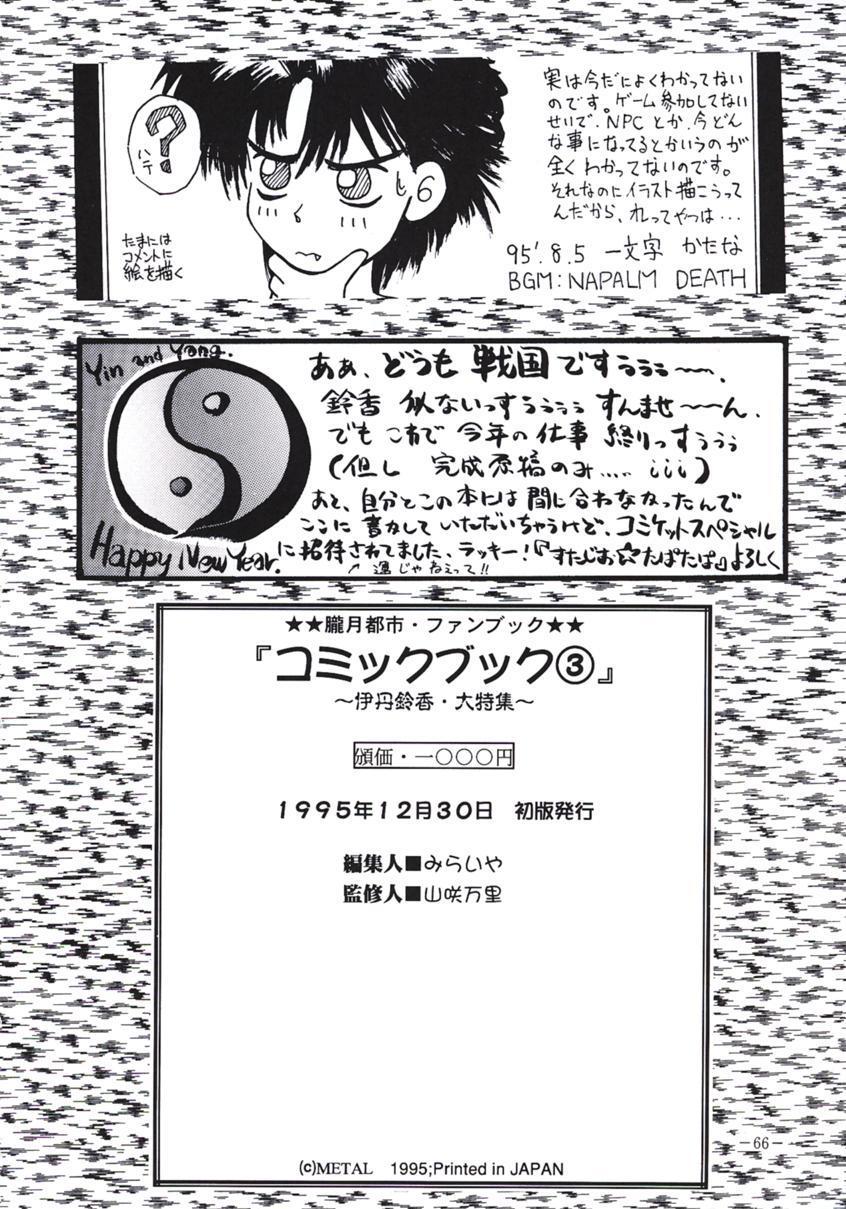 ?
ハテ
たまには
コメントに
絵を描く
実は今だによくわかってない
のです。ゲーム参加してない
せいで、NPCとか、今どん
な事になってるとかいうのが
全くわかってないのです。
それなのにイラスト描こうって
んだから、れってやつは…
95'.8.5 一文字 かたな
BGM:NAPALM DEATH
Yin and Yang.
Happy New Year.
ああ、どうも戦国ですぅぅぅ〜〜、
鈴香 似ないっすぅぅぅぅ すんませ〜〜ん、
でも これで 今年の仕事 終りっすぅぅぅ
(但し 完成原稿のみ.... iii)
あと、自分とこの本には間に合わなかったんで
ここに書かして いただいちゃうけど、コミケットスペシャル
に招待されてました、ラッキー!『すたじお☆たぱたぱ』よろしく
↗ 違じゃねえって!!
★★朧月都市・ファンブック★★
『コミックブック③』
〜伊丹鈴香・大特集〜
頒価・一〇〇〇円
1995年12月30日 初版発行
編集人■みらいや
監修人■山咲万里
(c)METAL 1995;Printed in JAPAN
-66-